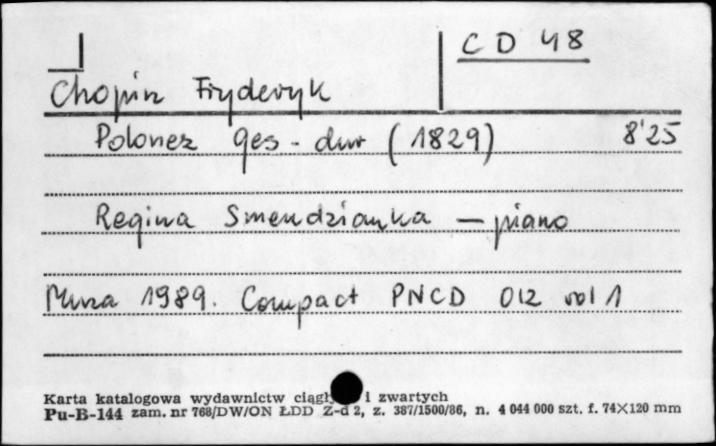 CD 48
Chopin Fryderyk
Polonez Ges-dur (1829) 8'25
Regina Smendzianka — piano
Muza 1989. Compact PNCD 012 vol 1
Karta katalogowa wydawnictw i zwartych
Pu-B-144 zam. nr 768/DW/ON ŁDD Z-d 2, z. 387/1500/86, n. 4 044 000 szt. f. 74×120 mm